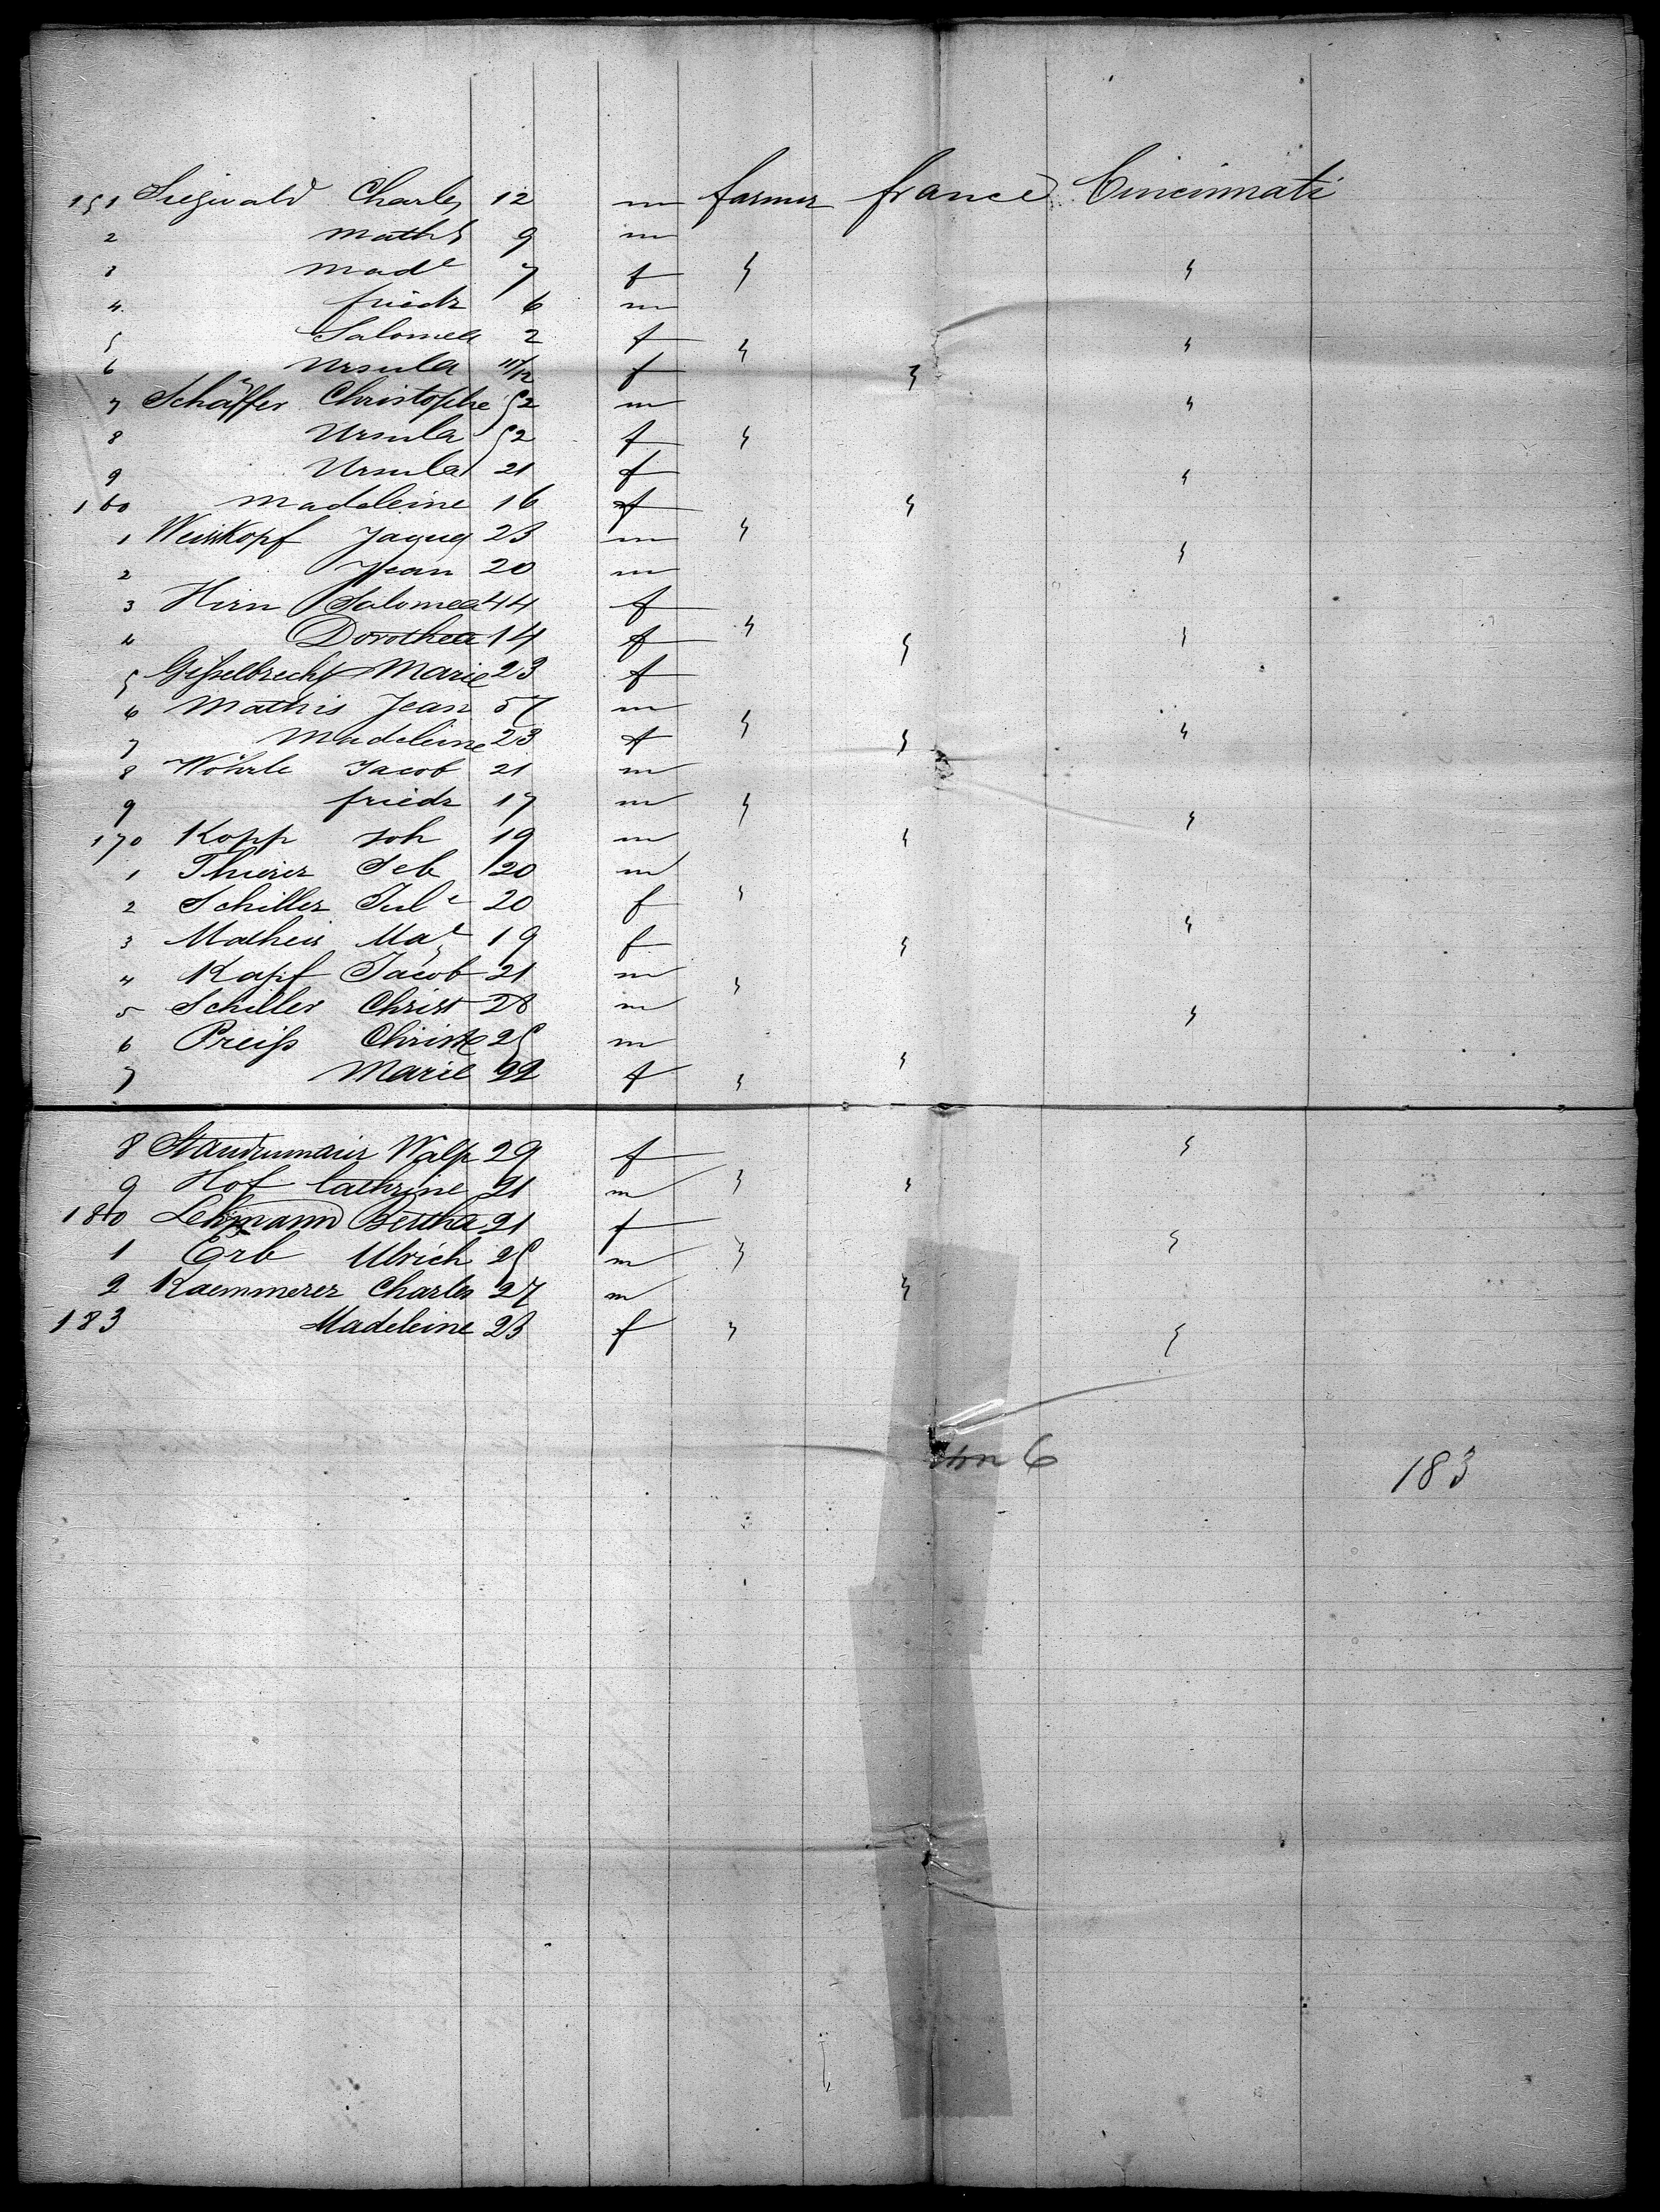 151 Siegwald Charles 12 m farmer france Cincinnati
2 Maths 9 m
3 Made 7 f " "
4 friedr 6 m
5 Salomea 2 f " "
6 Ursula 11/12 f "
7 Schäffer Christophe 52 m "
8 Ursula 52 f "
9 Ursula 21 f "
160 Madeleine 16 f "
1 Weiskopf Jaques 23 m "
2 Jean 20 m "
3 Hirn Salomea 44 f
4 Dorothea 14 f " " "
5 Gisselbrecht Marie 23 f
6 Mathis Jean 57 m "
7 Madeleine 23 f " "
8 Wöhrle Jacob 21 m
9 friedr 17 m " "
170 Kopp Joh 19 m "
1 Thierer Seb 20 m
2 Schiller Jule 20 f " "
3 Matheis Mae 19 f "
4 Kapf Jacob 21 m "
5 Schiller Christ 28 m "
6 Preiß Christe 25 m
7 Marie 22 f " "
8 Staudenmaier Walp 29 f "
9 Hof Cathrine 21 m " "
180 Lehmann Bertha 21 f
1 Erb Ulrich 25 m " "
2 Kaemmerer Charles 27 m "
183 Madeleine 23 f " "
6 183